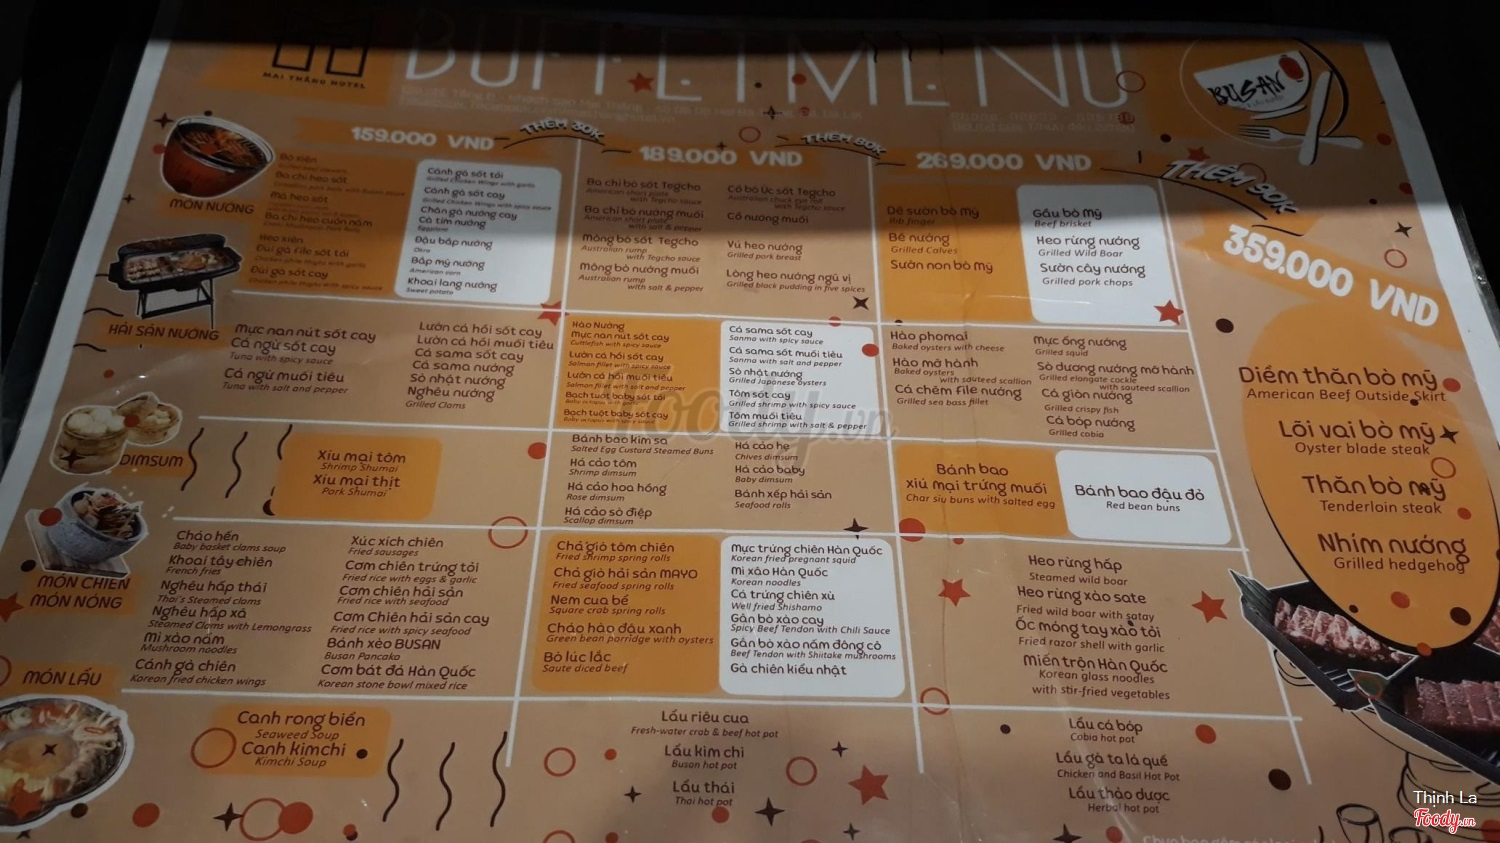 MAI THẮNG HOTEL
BUFFET MENU
BUSAN
159.000 VND
THÊM 30K
189.000 VND
THÊM 80K
269.000 VND
THÊM 90K
359.000 VND
MÓN NƯỚNG
Bò xiên
Ba chỉ heo sốt
Má heo sốt
Ba chỉ heo cuốn nấm
Heo xiên
Đùi gà file sốt tỏi
Đùi gà sốt cay
Cánh gà sốt tỏi
Grilled Chicken Wings with garlic
Cánh gà sốt cay
Grilled Chicken Wings with spicy sauce
Chân gà nướng cay
Cà tím nướng
Eggplant
Đậu bắp nướng
Okra
Bắp mỹ nướng
American corn
Khoai lang nướng
Sweet potato
Ba chỉ bò sốt Tegcho
American short plate
with Tegcho sauce
Ba chỉ bò nướng muối
American short plate
with salt & pepper
Mông bò sốt Tegcho
Australian rump
with Tegcho sauce
Mông bò nướng muối
Australian rump
with salt & pepper
Cổ bò Úc sốt Tegcho
with Tegcho sauce
Cổ nướng muối
Vú heo nướng
Grilled pork breast
Lòng heo nướng ngũ vị
Grilled black pudding in five spices
Dẻ sườn bò mỹ
Rib finger
Bê nướng
Grilled Calves
Sườn non bò mỹ
Gầu bò Mỹ
Beef brisket
Heo rừng nướng
Grilled Wild Boar
Sườn cây nướng
Grilled pork chops
HẢI SẢN NƯỚNG
Mực nan nút sốt cay
Cá ngừ sốt cay
Tuna with spicy sauce
Cá ngừ muối tiêu
Tuna with salt and pepper
Lườn cá hồi sốt cay
Lườn cá hồi muối tiêu
Cá sama sốt cay
Cá sama nướng
Sò nhật nướng
Nghêu nướng
Grilled Clams
Hào Nướng
Mực nan nút sốt cay
Cuttlefish with spicy sauce
Lườn cá hồi sốt cay
Salmon fillet with spicy sauce
Lườn cá hồi muối tiêu
Salmon fillet with salt and pepper
Bạch tuột baby sốt tỏi
Bạch tuột baby sốt cay
Cá sama sốt cay
Sanma with spicy sauce
Cá sama sốt muối tiêu
Sanma with salt and pepper
Sò nhật nướng
Grilled Japanese oysters
Tôm sốt cay
Grilled shrimp with spicy sauce
Tôm muối tiêu
Grilled shrimp with salt & pepper
Hào phomai
Baked oysters with cheese
Hào mỡ hành
Baked oysters
with sauteed scallion
Cá chẽm file nướng
Grilled sea bass fillet
Mực ống nướng
Grilled squid
Sò dương nướng mỡ hành
Grilled elongate cockle
with sauteed scallion
Cá giòn nướng
Grilled crispy fish
Cá bóp nướng
Grilled cobia
Diềm thăn bò mỹ
American Beef Outside Skirt
Lõi vai bò mỹ
Oyster blade steak
Thăn bò mỹ
Tenderloin steak
Nhím nướng
Grilled hedgehog
DIMSUM
Xíu mại tôm
Shrimp Shumai
Xíu mại thịt
Pork Shumai
Bánh bao kim sa
Salted Egg Custard Steamed Buns
Há cảo tôm
Shrimp dimsum
Há cảo hoa hồng
Rose dimsum
Há cảo sò điệp
Scallop dimsum
Há cảo hẹ
Chives dimsum
Há cảo baby
Baby dimsum
Bánh xếp hải sản
Seafood rolls
Bánh bao
xíu mại trứng muối
Char siu buns with salted egg
Bánh bao đậu đỏ
Red bean buns
MÓN CHIÊN
MÓN NÓNG
Cháo hến
Baby basket clams soup
Khoai tây chiên
French fries
Nghêu hấp thái
Thai's Steamed clams
Nghêu hấp xả
Steamed Clams with Lemongrass
Mì xào nấm
Mushroom noodles
Cánh gà chiên
Korean fried chicken wings
Xúc xích chiên
Fried sausages
Cơm chiên trứng tỏi
Fried rice with eggs & garlic
Cơm chiên hải sản
Fried rice with seafood
Cơm Chiên hải sản cay
Fried rice with spicy seafood
Bánh xèo BUSAN
Busan Pancake
Cơm bát đá Hàn Quốc
Korean stone bowl mixed rice
Chả giò tôm chiên
Fried shrimp spring rolls
Chả giò hải sản MAYO
Fried seafood spring rolls
Nem cua bể
Square crab spring rolls
Cháo hào đậu xanh
Green bean porridge with oysters
Bò lúc lắc
Saute diced beef
Mực trứng chiên Hàn Quốc
Korean fried pregnant squid
Mì xào Hàn Quốc
Korean noodles
Cá trứng chiên xù
Well fried Shishamo
Gân bò xào cay
Spicy Beef Tendon with Chili Sauce
Gân bò xào nấm đông cô
Beef Tendon with Shiitake mushrooms
Gà chiên kiểu nhật
Heo rừng hấp
Steamed wild boar
Heo rừng xào sate
Fried wild boar with satay
Ốc móng tay xào tỏi
Fried razor shell with garlic
Miến trộn Hàn Quốc
Korean glass noodles
with stir-fried vegetables
MÓN LẨU
Canh rong biển
Seaweed Soup
Canh kimchi
Kimchi Soup
Lẩu riêu cua
Fresh-water crab & beef hot pot
Lẩu kim chi
Busan hot pot
Lẩu thái
Thai hot pot
Lẩu cá bóp
Cobia hot pot
Lẩu gà ta lá quế
Chicken and Basil Hot Pot
Lẩu thảo dược
Herbal hot pot
Foody.vn
Thịnh La
Foody.vn